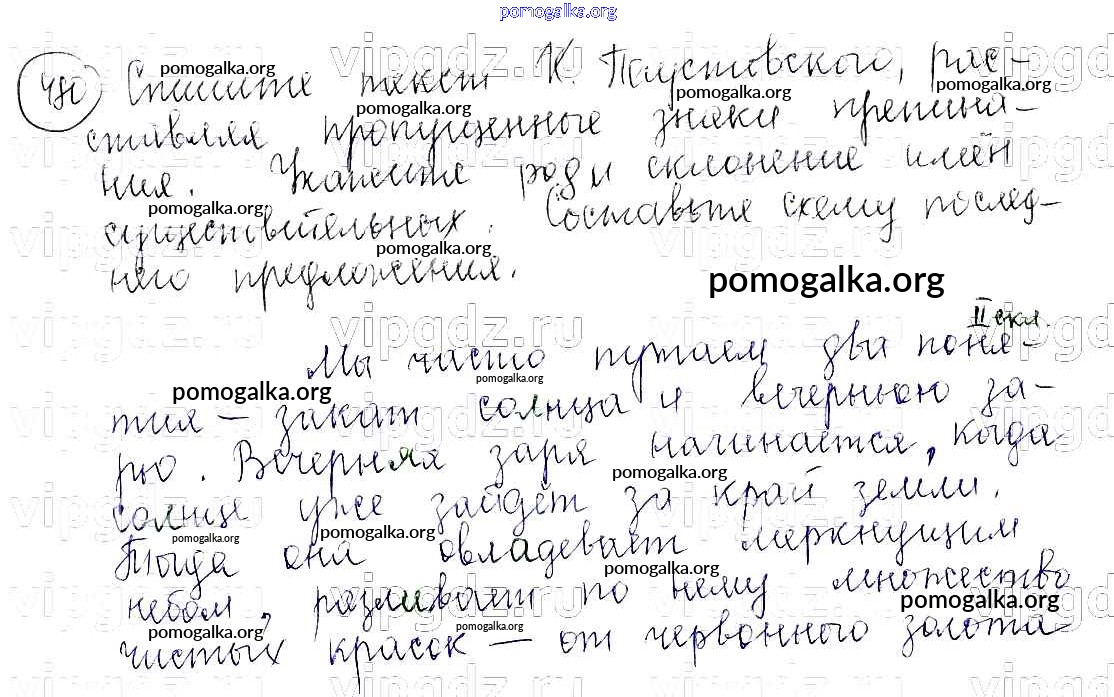 pomogalka.org
480 Спишите текст К. Паустовского, рас-
ставляя пропущенные знаки препина-
ния. Укажите род и склонение имён
существительных. Составьте схему послед-
него предложения.
pomogalka.org
II скл.
Мы часто путаем два поня-
тия — закат солнца и вечернюю за-
рю. Вечерняя заря начинается, когда
солнце уже зайдёт за край земли.
Тогда она овладевает меркнущим
небом, разливает по нему множество
чистых красок — от червонного золота